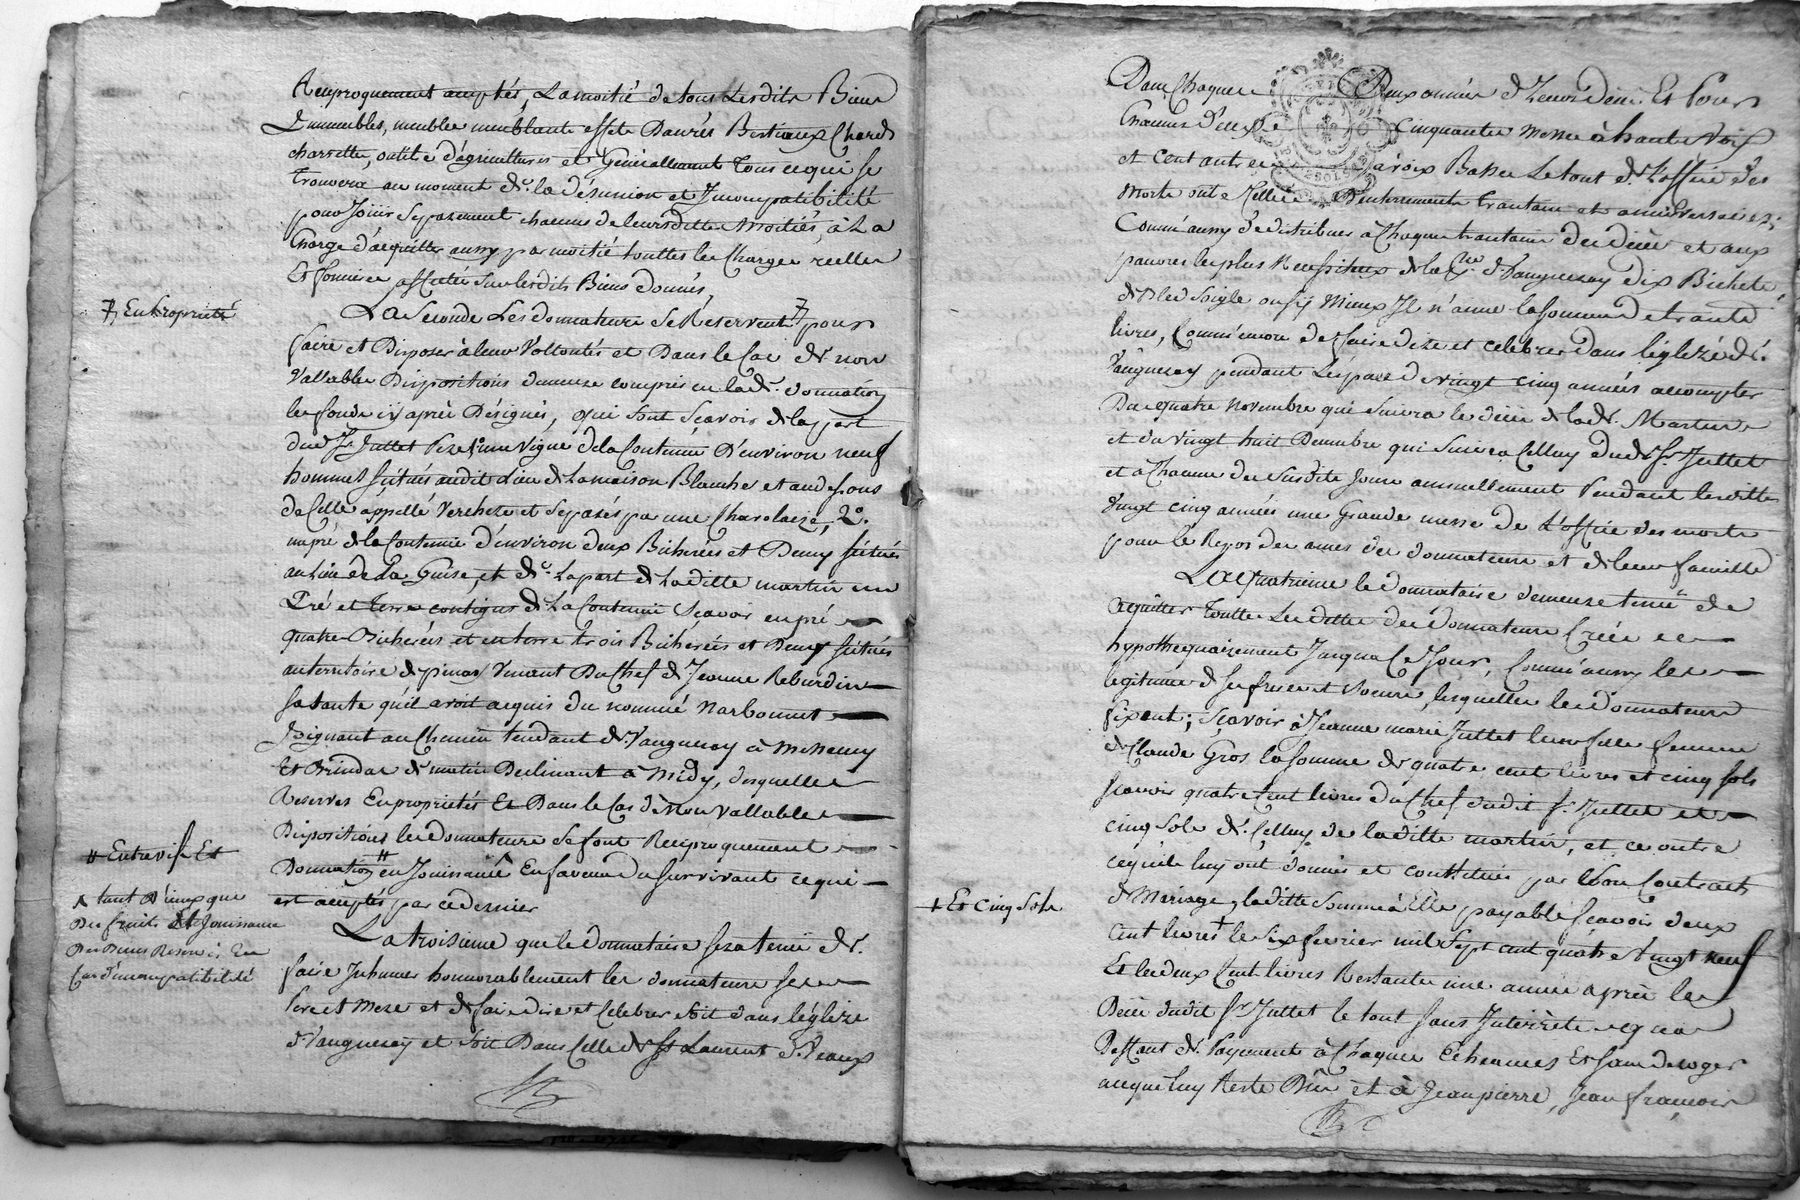 Reciproquement acceptés, La moitié de tous Lesdits Biens
Immeubles, meubles meublants effets Danrés Bestiaux Chards
charrette, outils d'agricultures et Généallement Tous ce qui se
trouvera au moment de la désunion et Incompatibilité
pour Joüir Separement chacuns de leursdittes Moitiés, à La
Charge d'acquitter aussy par moitié touttes les Charges reelles
Et foncieres affectés Sur lesdits Biens donnés
7, En Propriété
La Seconde Les donnateurs Se Reservent 7 pour
faire et Disposer à leur Vollontés et Dans le Cas de non
Vallables Dispositions demeure compris en lad. donnation
les fonds cy après Désignés, qui sont Sçavoir de la part
dud. Sr. Juttet une Vigne de la Contenue D'environ neuf
hommes située audit Lieu de La maison Blanche et au dessous
de Celle appellé Verchere et Separés par une Charolaize, 2°.
un pré de la Contenue d'environ deux Bicherées et Demy situés
au Lieu de La Guise, et de La part de Laditte martin un
Pré et terre contigus de La Contenue Sçavoir en pré
quatre Bicherées et en terre trois Bicherées et Demy situés
au territoire de pinay Venant Du Chef de Jeanne Reburdin
sa tante qu'il avoit acquis du nommé Narbonnet
Joignant au Chemin tendant de Vaugneray à Messimy
Et Brindas de matin Declinant à midy, desquelles
Reserves En propriétés Et Dans le Cas de Non Vallables
Dispositions les donnateurs se font Reciproquement
# Entrevifs Et
Donnation # en Joüissance En faveur du survivant ce qui
est accepté par ce dernier
^ tant D'iceux que
Des fruits Et Joüissance
Des Biens Reservés En
Cas d'incompatibilité
La troisieme que le donnataire sera tenu de
faire Inhumer honnorablement les donnateurs ses
Pere et Mere et de faire dire et Celebrer soit dans l'églize
de Vaugneray et soit Dans Celle de St Laurent de Vaux
Dans Chaque Deux années de Leurs déces Et Pour
Chacuns D'eux cinquante Messe à haute Voix
et cent autres à voix Basse Le tout de L'office des
Morts outre Celles D'enterrement trantain et anniversaires;
Comme aussy de distribuer à Chaque trantaine du décès et aux
pauvres les plus Necessiteux de la Psse de Vaugneray dix Bichets
de Bled Soigle ou si Mieux Il n'aime la somme de trante
livres, Comme encore de faire dire et celebrer dans l'églize de
Vaugneray pendant L'éspace de vingt cinq années à compter
Du quatre Novembre qui Suivra le décès de lad. Martin
et du Vingt huit Decembre qui Suivra Celluy dud. Sr. Juttet
et à Chacun des Susdits Jours annuellement Pendant lesdittes
Vingt cinq années une Grande messe de L'office des morts
pour le Repos des ames des donnateurs et de leur famille
La quatrieme le donnataire demeure tenu de
acquitter Touttes Les dettes des Donnateurs Créés
hypothequairement Jusqua Ce Jour, Comme aussy les
legitimes de ses freres et soeurs, lesquelles les donnateurs
fixent; Sçavoir à Jeanne marie Juttet leur fille femme
de Claude Gros la somme de quatre cent livres et cinq sols
sçavoir quatre Cent livres du Chef dudit Sr. Juttet et
cinq Sols de Celluy de laditte martin, et ce outre
ce qu'ils luy ont donnés et constitués par son Contract
+ Et Cinq Sols
de Mariage, laditte Somme à Elle payable sçavoir deux
cent livres + le six fevrier mil sept cent quatre vingt neuf
Et les deux Cent livres Restantes une année après le
Decès dudit Sr. Juttet le tout sans Interrèts qu'a
Deffaut de Payement à Chaque Echeances Et sans deroger
à ce qui luy Reste Dûe et à Jean pierre, Jean françois